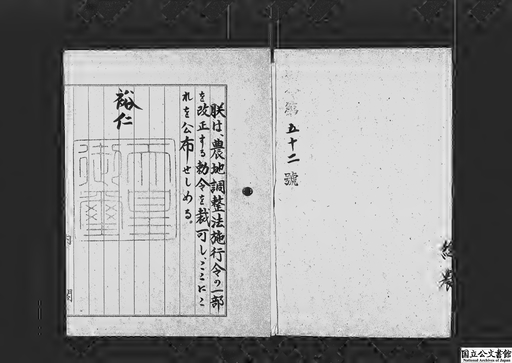 第五十二號
朕は、農地調整法施行令の一部
を改正する勅令を裁可し、ここにこ
れを公布せしめる。
裕仁
天皇
御璽
国立公文書館
National Archives of Japan